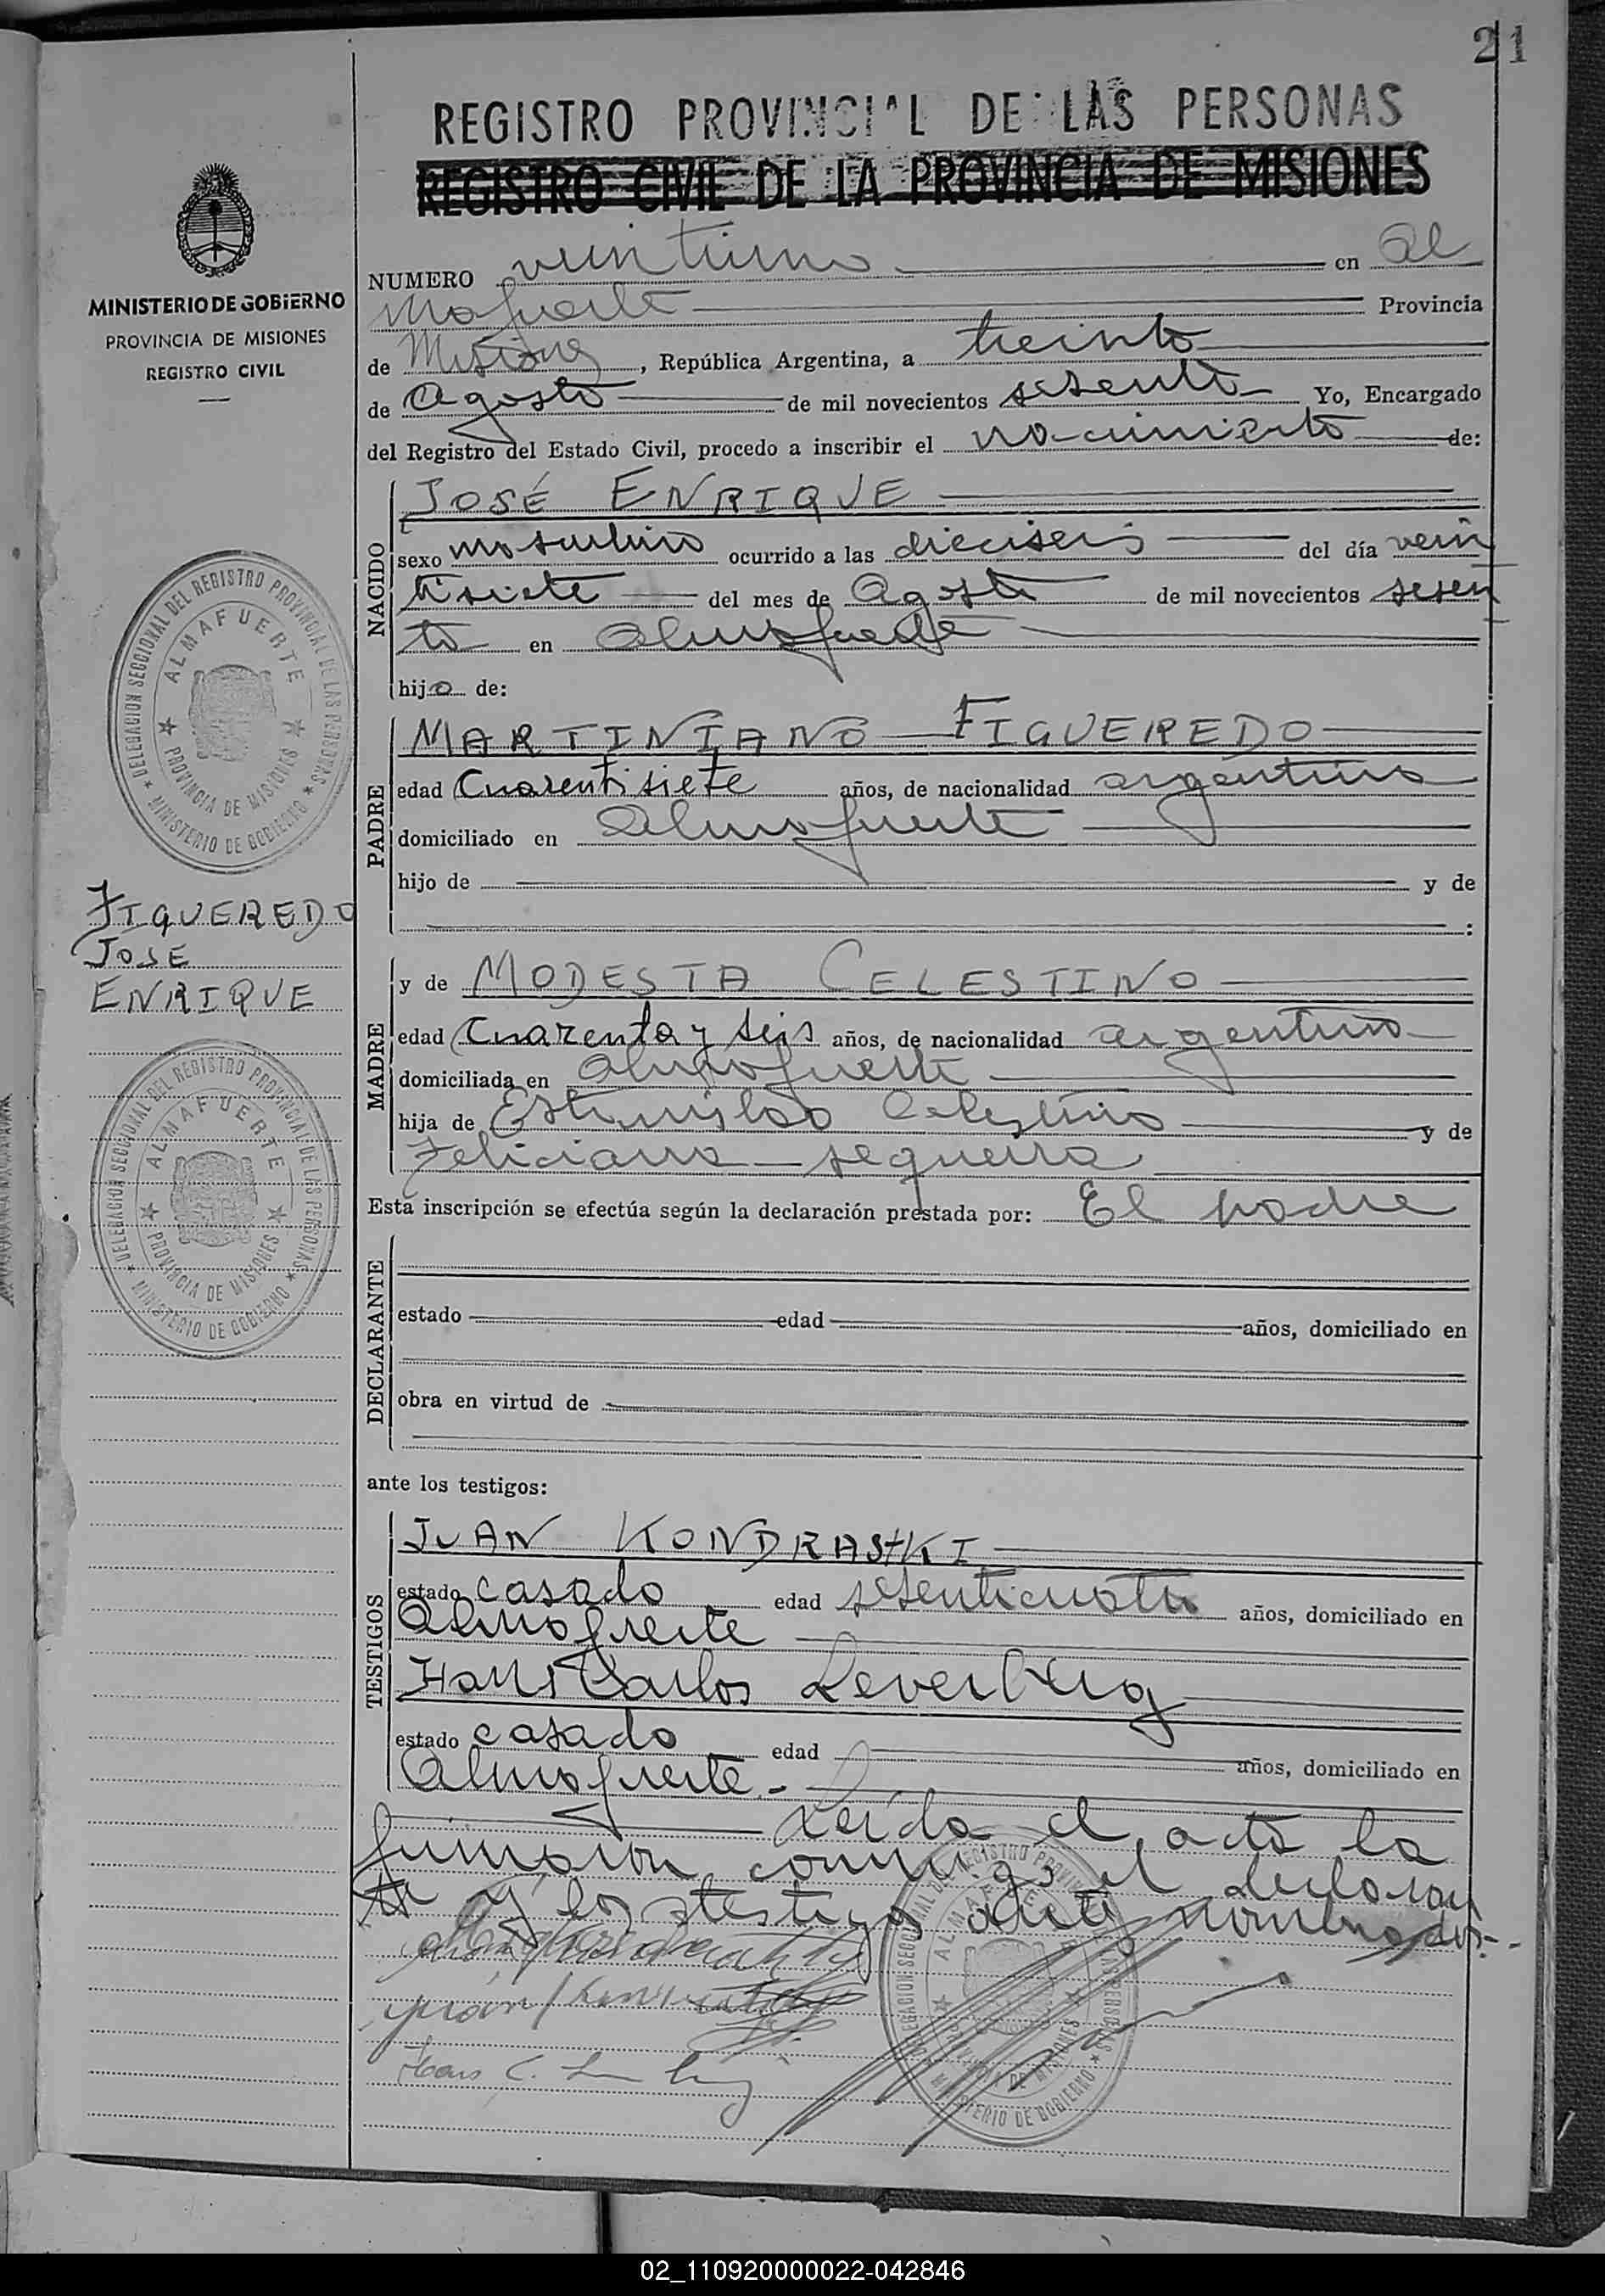 21
REGISTRO PROVINCIAL DE LAS PERSONAS
REGISTRO CIVIL DE LA PROVINCIA DE MISIONES
MINISTERIO DE GOBIERNO
PROVINCIA DE MISIONES
REGISTRO CIVIL
NUMERO veintiuno en Al
mafuerte Provincia
de Misiones, República Argentina, a treinta
de Agosto de mil novecientos sesenta Yo, Encargado
del Registro del Estado Civil, procedo a inscribir el nacimiento de:
NACIDO
JOSÉ ENRIQUE
sexo masculino ocurrido a las dieciseis del día vein
tisiete del mes de Agosto de mil novecientos sesen
ta en Almafuerte
hijo de:
PADRE
MARTINIANO FIGUEREDO
edad Cuarentisiete años, de nacionalidad argentina
domiciliado en Almafuerte
hijo de y de
:
MADRE
y de MODESTA CELESTINO
edad Cuarenta y seis años, de nacionalidad argentina
domiciliada en Almafuerte
hija de Estanislao Celestino y de
Feliciana sequeira
Esta inscripción se efectúa según la declaración prestada por: El padre
DECLARANTE
estado edad años, domiciliado en
obra en virtud de
ante los testigos:
TESTIGOS
JUAN KONDRASHKI
estado casado edad sesenticuatro años, domiciliado en
Almafuerte
Hans Carlos Leverberg
estado casado edad años, domiciliado en
Almafuerte.-
Leída el acta la
firmaron conmigo el declaran
te y los testigos antes nombrados.-
Hans C.
FIGUEREDO
JOSE
ENRIQUE
DELEGACION SECCIONAL DEL REGISTRO PROVINCIAL DE LAS PERSONAS
MINISTERIO DE GOBIERNO
ALMAFUERTE
PROVINCIA DE MISIONES
DELEGACION SECCIONAL DEL REGISTRO PROVINCIAL DE LAS PERSONAS
MINISTERIO DE GOBIERNO
ALMAFUERTE
PROVINCIA DE MISIONES
02_110920000022-042846